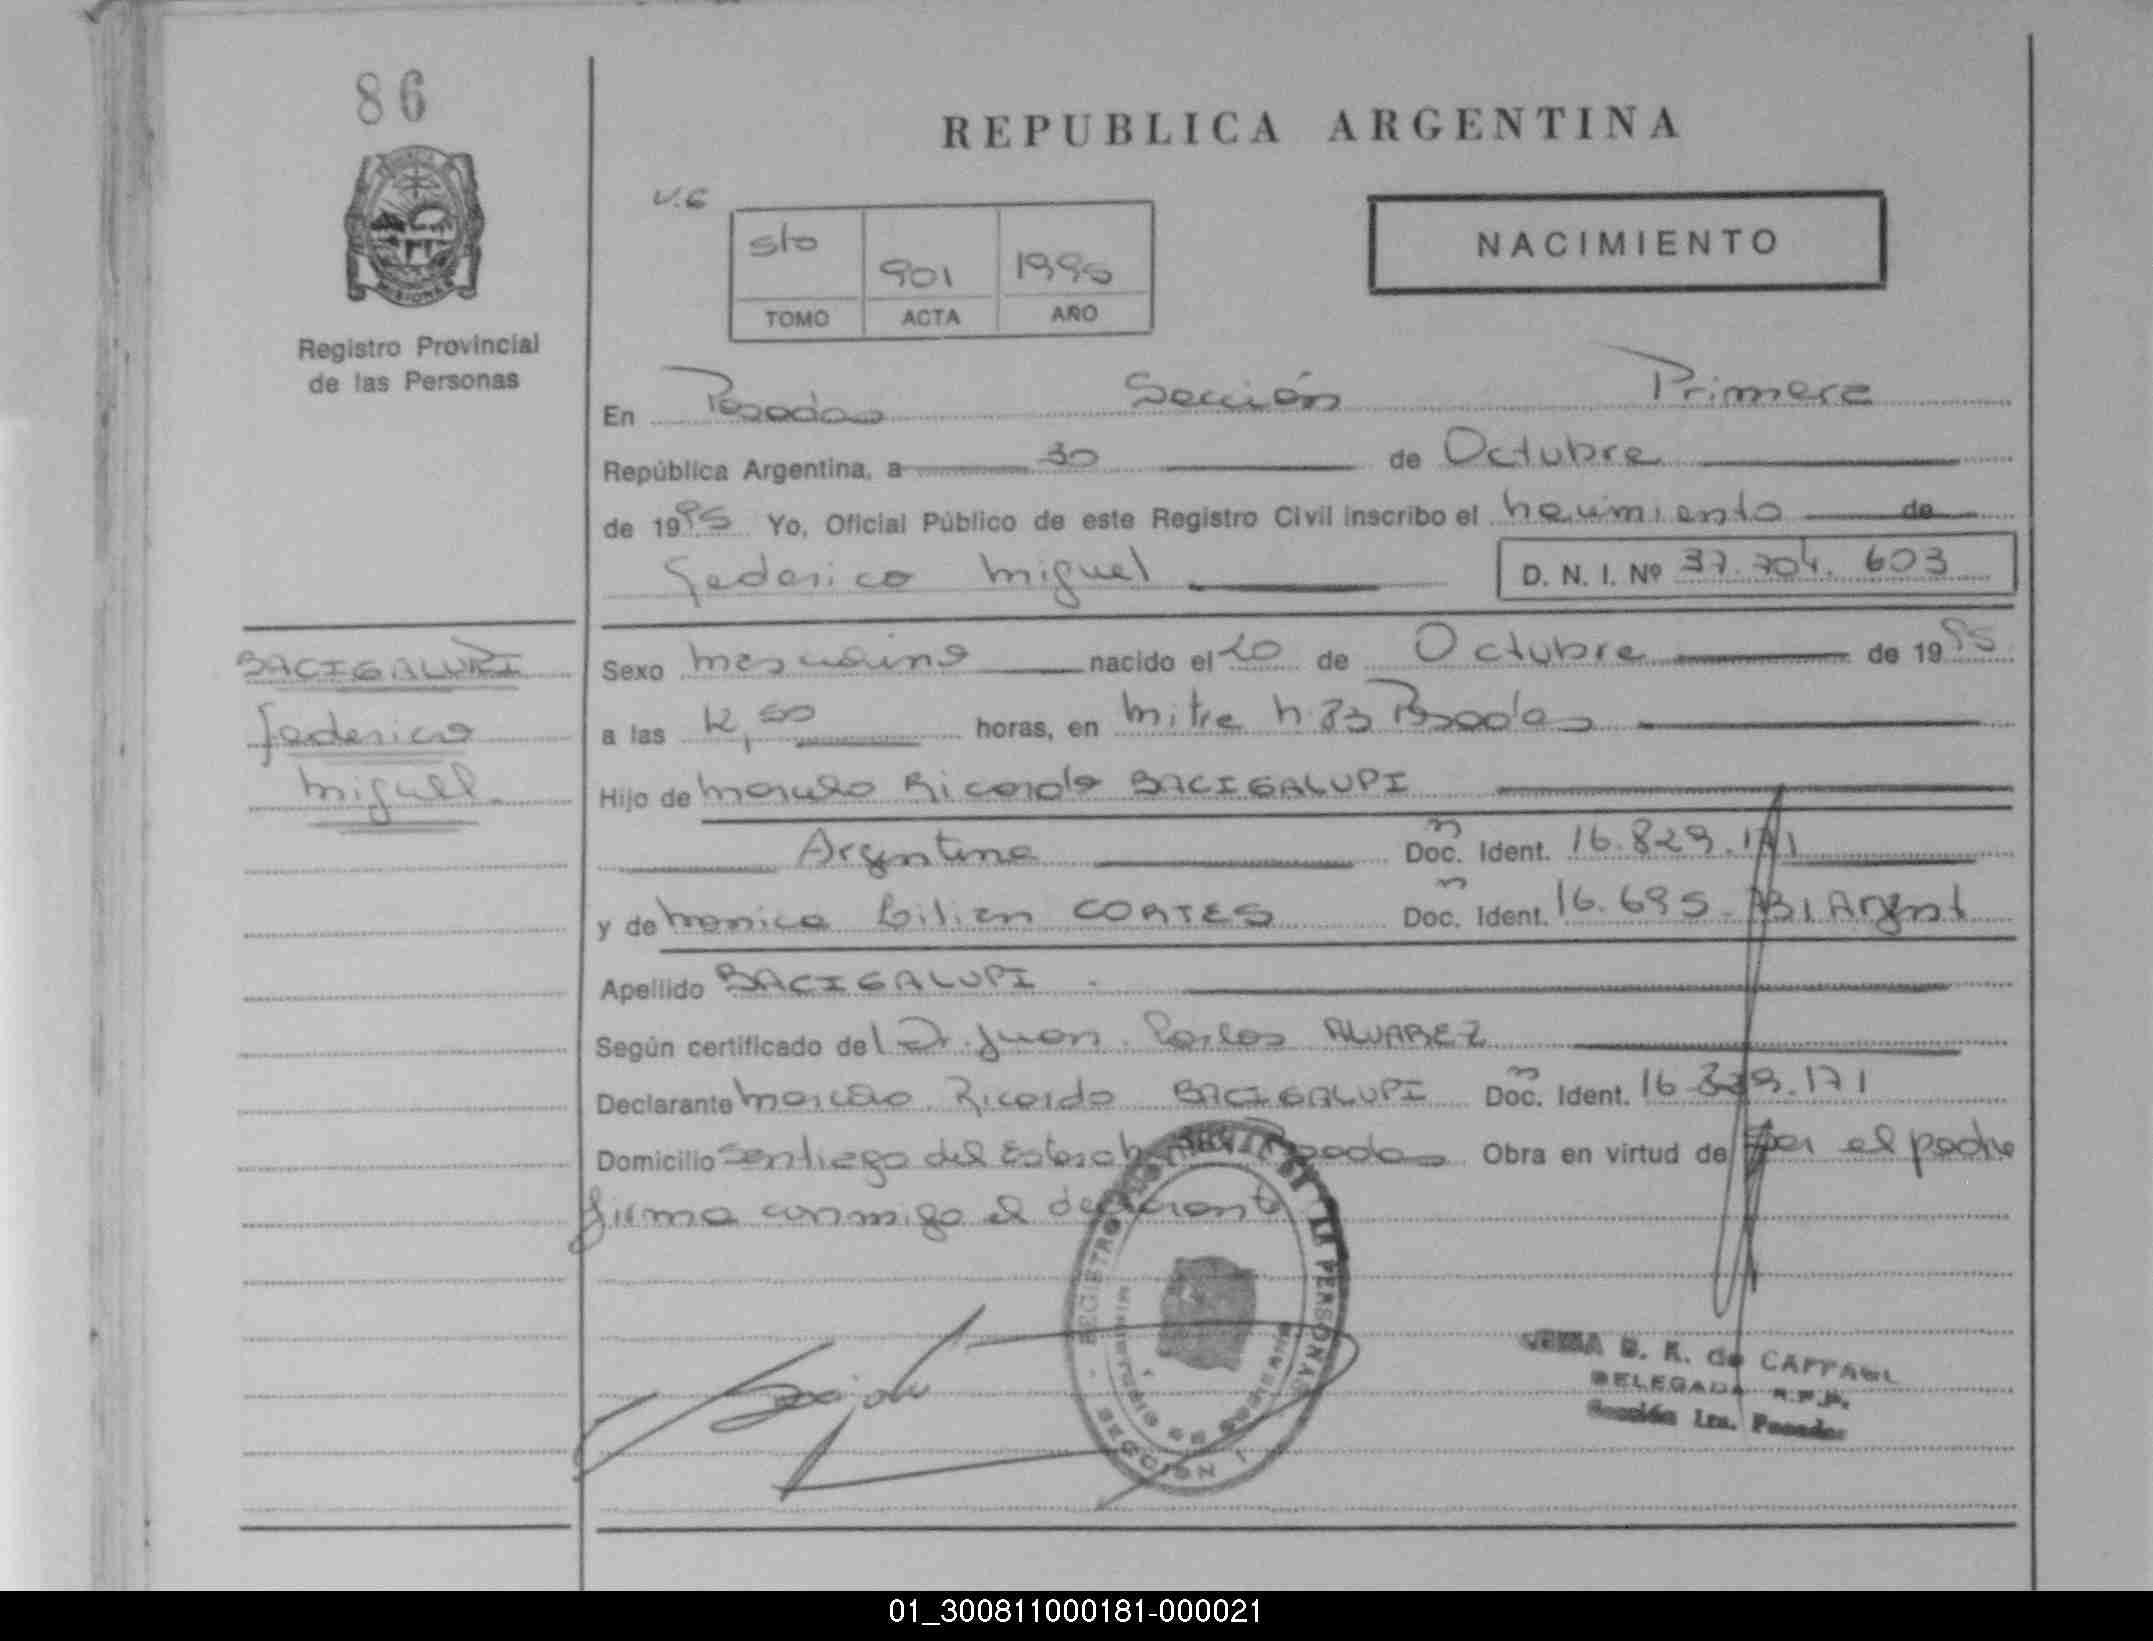 86
REPUBLICA ARGENTINA
V.G
5to 901 1995
TOMO ACTA AÑO
NACIMIENTO
MISIONES
Registro Provincial
de las Personas
En Posadas Sección Primera
República Argentina, a 30 de Octubre
de 1995 Yo, Oficial Público de este Registro Civil inscribo el nacimiento de
Federico Miguel D. N. I. Nº 37.704.603
BACIGALUPI
Federico
Miguel
Sexo masculino nacido el 20 de Octubre de 1995
a las 12,50 horas, en Mitre n 83 Posadas
Hijo de Marcelo Ricardo BACIGALUPI
Argentina Doc. Ident. 16.829.171
y de Monica Lilian CORTES Doc. Ident. 16.695. Argent
Apellido BACIGALUPI
Según certificado del Dr. Juan Carlos ALVAREZ
Declarante Marcelo Ricardo BACIGALUPI Doc. Ident. 16.829.171
Domicilio Santiago del Estero Posadas Obra en virtud de ser el padre
firma conmigo el declarante
REGISTRO DE LAS PERSONAS
SECCION 1
B. K. de
DELEGADA R.P.P.
Sección 1ra. Posadas
01_300811000181-000021